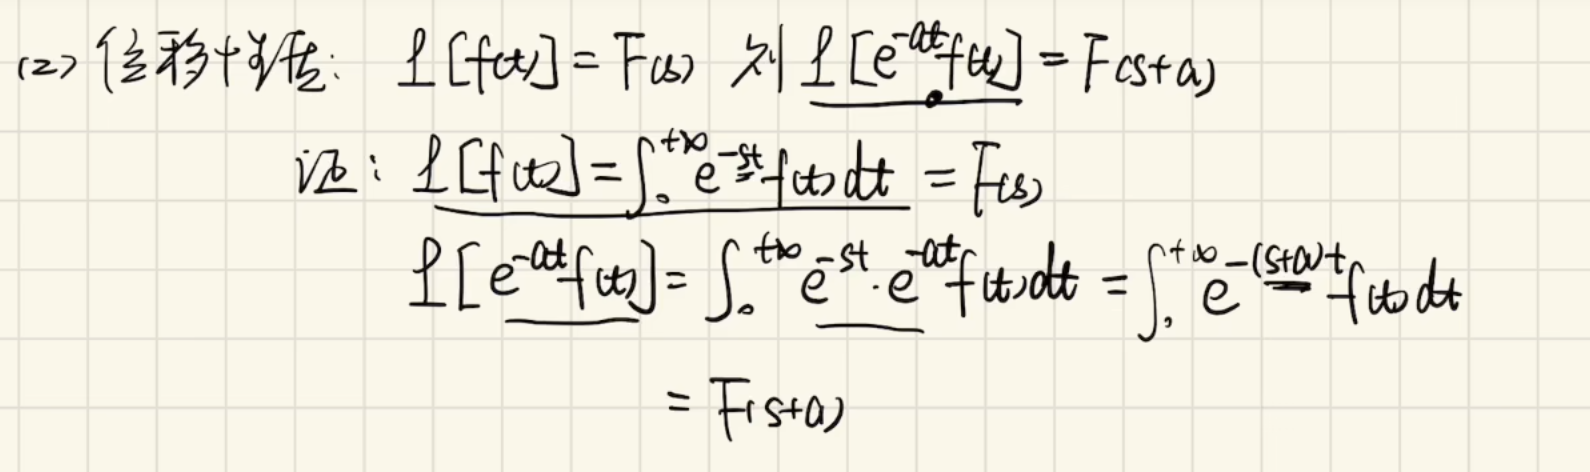 (2) 位移性质: L[f(t)] = F(s) 则 L[e^{-at}f(t)] = F(s+a)
证: L[f(t)] = ∫₀^{+∞} e^{-st} f(t) dt = F(s)
L[e^{-at}f(t)] = ∫₀^{+∞} e^{-st}·e^{-at} f(t) dt = ∫₀^{+∞} e^{-(s+a)t} f(t) dt
= F(s+a)